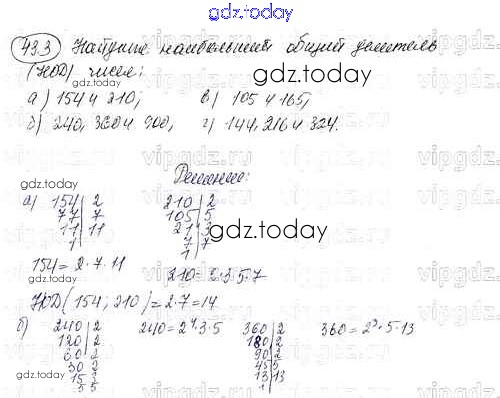 gdz.today
43.3 Найдите наибольший общий делитель
(НОД) чисел:
gdz.today
а) 154 и 210; в) 105 и 165;
б) 240, 360 и 900, г) 144, 216 и 324.
vipgdz.ru
Решение:
gdz.today
а) 154 | 2 210 | 2
77 | 7 105 | 5
11 | 11 21 | 3
1 7 | 7
1
gdz.today
154 = 2·7·11 210 = 2·3·5·7
gdz.today
НОД (154; 210) = 2·7 = 14
б) 240 | 2 240 = 2⁴·3·5 360 | 2 360 = 2³·5·13
120 | 2 180 | 2
60 | 2 90 | 2
30 | 2 45 | 5
15 | 3 13 | 13
5 | 5 1